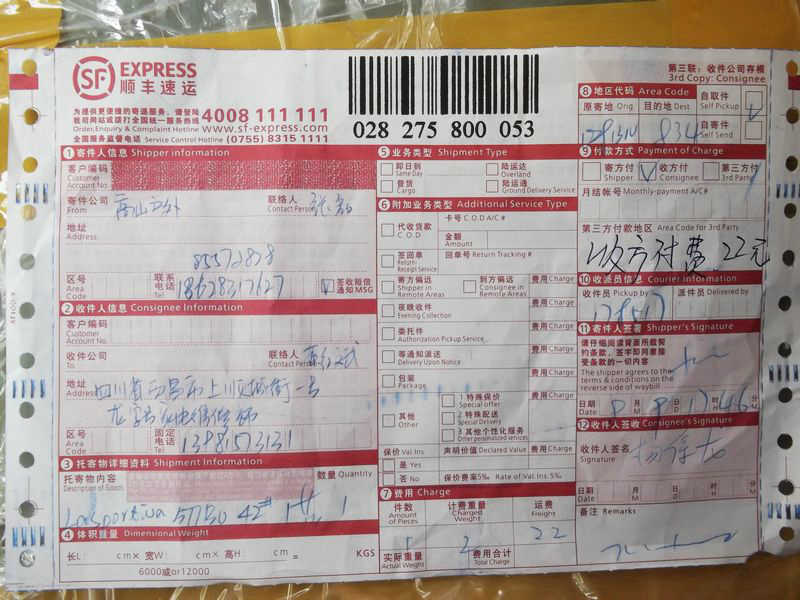 SF EXPRESS
顺丰速运
为提供更便捷的寄递服务，请登陆
我司网站或拨打全国统一服务热线 4008 111 111
Order, Enquiry & Complaint Hotline www.sf-express.com
全国服务监督电话 Service Control Hotline (0755) 8315 1111
028 275 800 053
第三联：收件公司存根
3rd Copy: Consignee
8 地区代码 Area Code
原寄地 Orig 目的地 Dest
834
自取件
Self Pickup
自寄件
Self Send
1 寄件人信息 Shipper information
客户编码
Customer
Account No.
寄件公司
From
联络人
Contact Person
地址
Address
85572838
区号
Area
Code
联系
电话
Tel
18628317627
签收短信
通知MSG
2 收件人信息 Consignee Information
客户编码
Customer
Account No.
收件公司
To
联络人
Contact Person
地址
Address
四川省西昌市上顺城街一号
区号
Area
Code
固定
电话
Tel
13981573131
3 托寄物详细资料 Shipment Information
托寄物内容
Description of Goods
数量 Quantity
Lasportiva 577BO 42# 1件 1
4 体积重量 Dimensional Weight
长L: cm× 宽W: cm× 高H cm= KGS
6000或or12000
5 业务类型 Shipment Type
即日到
Same Day
陆运达
Overland
普货
Cargo
陆运通
Ground Delivery Service
6 附加业务类型 Additional Service Type
代收货款
C.O.D
卡号 C.O.D A/C#
金额
Amount
签回单
Return
Receipt Service
回单号 Return Tracking #
寄方偏远
Shipper in
Remote Areas
到方偏远
Consignee in
Remote Areas
费用 Charge
夜晚收件
Evening Collection
费用 Charge
委托件
Authorization Pickup Service
费用 Charge
等通知派送
Delivery Upon Notice
费用 Charge
包装
Package
费用 Charge
其他
Other
1 特殊保价
Special offer
2 特殊配送
Special Delivery
3 其他个性化服务
Other personalized services
费用 Charge
保价 Val Ins
声明价值 Declared Value
费用 Charge
是 Yes
否 No
保价费率5‰ Rate of Val Ins. 5‰
7 费用 Charge
件数
Amount of
Pieces
计费重量
Charged
Weight
运费
Freight
1 2 22
实际重量
Actual Weight
费用合计
Total Charge
9 付款方式 Payment of Charge
寄方
Shipper
收方付
Consignee
第三方付
3rd Party
月结帐号 Monthly-payment A/C#
第三方付款地区 Area Code for 3rd Party
收方付费 22元
10 收派员信息 Courier Information
收件员 Pickup by
派件员 Delivered by
11 寄件人签署 Shipper's Signature
请仔细阅读背面所载契
约条款，签字即同意接
受条款的一切内容
The shipper agrees to the
terms & conditions on the
reverse side of waybill
日期
Date
月
M
日
D
时
H
分
M
12 收件人签收 Consignee's Signature
收件人签名
Signature
日期
Date
月
M
日
D
时
H
分
M
备注 Remarks